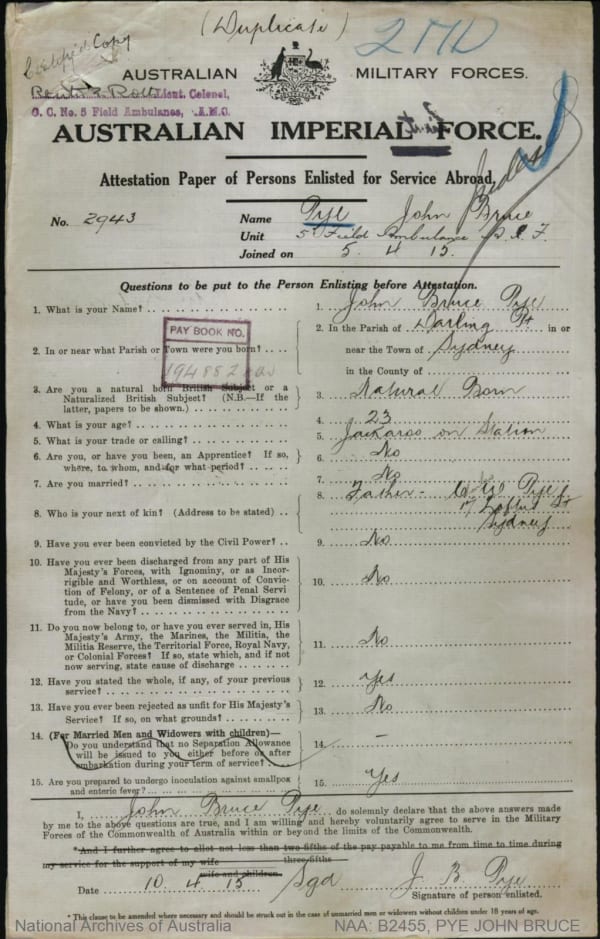 (Duplicate)
Certified Copy
2 MD
AUSTRALIAN MILITARY FORCES.
Lieut. Colonel,
O. C. No. 5 Field Ambulance, A.M.C.
AUSTRALIAN IMPERIAL FORCE.
Attestation Paper of Persons Enlisted for Service Abroad.
No. 2943 Name Pye John Bruce
Unit 5 Field Ambulance A.I.F.
Joined on 5 . 4 15.
Questions to be put to the Person Enlisting before Attestation.
1. What is your Name? 1. John Bruce Pye
PAY BOOK NO.
2. In or near what Parish or Town were you born? 2. In the Parish of Darling Pt in or
near the Town of Sydney
in the County of
3. Are you a natural born British Subject or a
Naturalized British Subject? (N.B.—If the
latter, papers to be shown.) 3. Natural Born
4. What is your age? 4. 23
5. What is your trade or calling? 5. Jackaroo on Station
6. Are you, or have you been, an Apprentice? If so,
where, to whom, and for what period? 6. No
7. Are you married? 7. No
8. Who is your next of kin? (Address to be stated) 8. Father - Pye
17 Loftus St
Sydney
9. Have you ever been convicted by the Civil Power? 9. No
10. Have you ever been discharged from any part of His
Majesty's Forces, with Ignominy, or as Incor-
rigible and Worthless, or on account of Convic-
tion of Felony, or of a Sentence of Penal Servi-
tude, or have you been dismissed with Disgrace
from the Navy? 10. No
11. Do you now belong to, or have you ever served in, His
Majesty's Army, the Marines, the Militia, the
Militia Reserve, the Territorial Force, Royal Navy,
or Colonial Forces? If so, state which, and if not
now serving, state cause of discharge 11. No
12. Have you stated the whole, if any, of your previous
service? 12. Yes
13. Have you ever been rejected as unfit for His Majesty's
Service? If so, on what grounds? 13. No
14. (For Married Men and Widowers with children)—
Do you understand that no Separation Allowance
will be issued to you either before or after
embarkation during your term of service? 14. -
15. Are you prepared to undergo inoculation against smallpox
and enteric fever? 15. Yes
I, John Bruce Pye do solemnly declare that the above answers made
by me to the above questions are true, and I am willing and hereby voluntarily agree to serve in the Military
Forces of the Commonwealth of Australia within or beyond the limits of the Commonwealth.
*And I further agree to allot not less than two-fifths of the pay payable to me from time to time during
my service for the support of my wife three-fifths
wife and children.
Date 10 . 4 15 Sgd J. B. Pye
Signature of person enlisted.
* This clause to be amended where necessary and should be struck out in the case of unmarried men or widowers without children under 18 years of age.
National Archives of Australia NAA: B2455, PYE JOHN BRUCE